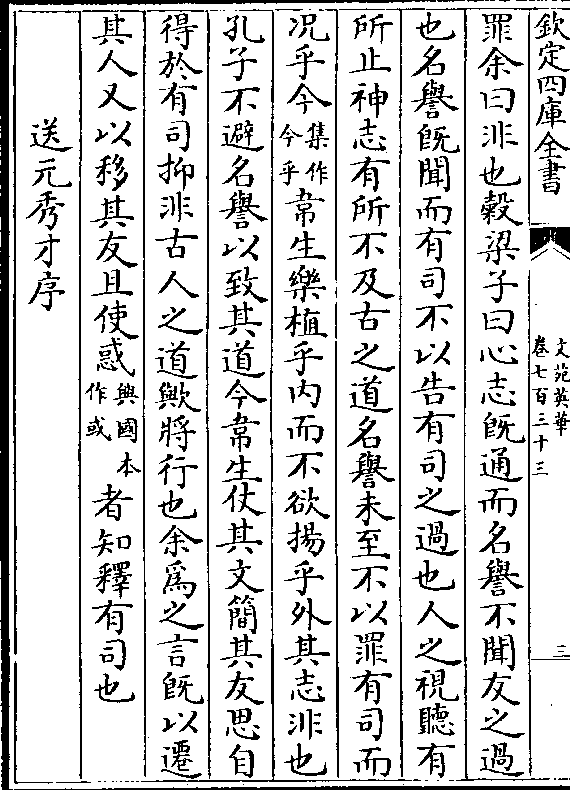 欽定四庫全書
文苑英華
卷七百三十三
三
罪余曰非也穀梁子曰心志旣通而名譽不聞友之過
也名譽旣聞而有司不以告有司之過也人之視聽有
所止神志有所不及古之道名譽未至不以罪有司而
况乎今集作今乎韋生樂植乎内而不欲揚乎外其志非也
孔子不避名譽以致其道今韋生仗其文簡其友思自
得於有司抑非古人之道歟將行也余爲之言旣以遷
其人又以移其友且使惑興國本作或者知釋有司也
送元秀才序